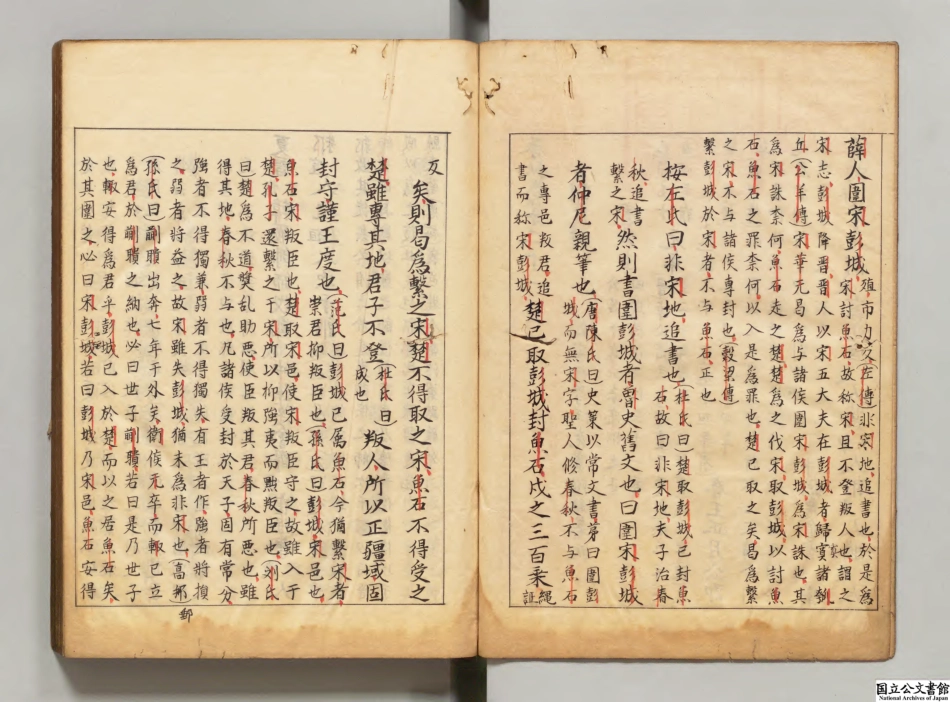 薛人圍宋彭城
殖市力反左傳非宋地追書也於是為
宋討魚石故称宋且不登叛人也謂之
宋志彭城降晉晉人以宋五大夫在彭城者歸寘諸瓠
丘公羊傳宋華元曷為与諸侯圍宋彭城為宋誅也其
為宋誅柰何魚石走之楚楚為之伐宋取彭城以討魚
石魚石之罪柰何以入是為罪也楚已取之矣曷為繫
之宋不与諸侯專封也穀梁傳
繫彭城於宋者不与魚石正也
按左氏曰非宋地追書也
杜氏曰楚取彭城已封魚
石故曰非宋地夫子治春
秋追書
繫之宋
然則書圍彭城者魯史舊文也曰圍宋彭城
者仲尼親筆也
唐陳氏曰史策以常文書第曰圍彭
城而無宋字聖人脩春秋不与魚石
之專邑叛君追
書而称宋彭城
楚已取彭城封魚石戍之三百乘
繩
証
反
矣則曷為繫之宋楚不得取之宋魚石不得受之
楚雖專其地君子不登
杜氏曰
成也
叛人所以正疆域固
封守謹王度也
范氏曰彭城已属魚石今猶繫宋者
崇君抑叛臣也孫氏曰彭城宋邑也
魚石宋叛臣也楚取宋邑使宋叛臣守之故雖入于
楚孔子還繫之于宋所以抑強夷而黜叛臣也劉氏
曰楚為不道奬乱助悪使臣叛其君春秋所悪也雖
得其地春秋不与也凡諸侯受封於天子固有常分
強者不得獨兼弱者不得獨失有王者作強者将損
之弱者将益之故宋雖失彭城猶未為非宋也高郵
孫氏曰蒯聵出奔七年于外矣衛侯元卒而輙已立
為君於蒯聵之納也必曰世子蒯聵若曰是乃世子
也輙安得為君乎彭城已入於楚而以之居魚石矣
於其圍之必曰宋彭城若曰彭城乃宋邑魚石安得
郵
国立公文書館
National Archives of Japan